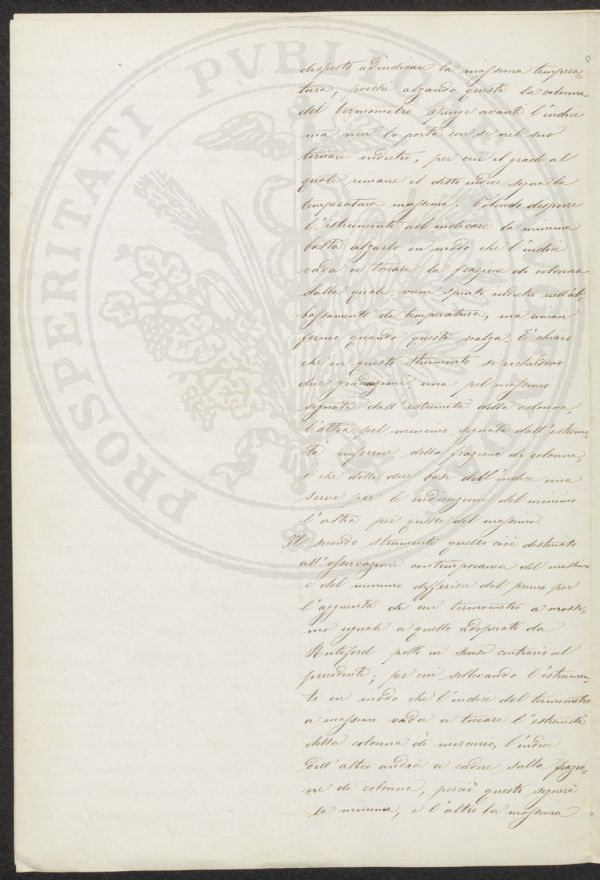 disposto ad indicare la massima tempera=
tura, poiche alzando questa la colonna
del termometro spinge avanti l'indice
ma non lo porta con se nel suo
tornare indietro, per cui il grado al
quale rimane il ditto indice segna la
temperatura massima. Volendo disporre
l'istrumento ad indicare la minima
basta alzarlo in modo che l'indice
vada a toccare la frazione di colonna
dalla quale viene spinto indietro nell'ab-
bassamento di temperatura, ma riman
fermo quando questa salga. È chiaro
che in questo strumento si richiedono
due graduazioni una pel massimo
segnata dall'estremità della colonna,
l'altra pel minimo segnata dall'estremi-
tà inferiore della frazione di colonna,
e che delle due base dell'indice una
serve per le indicazione del minimo
l'altra per quelle del massimo.
Il secondo strumento quello cioè destinato
all'osservazione contemporanea del massimo
e del minimo differisce dal primo per
l'aggiunta di un termometro a massi-
mo uguale a quello adoperato da
Ruteford posto in senso contrario al
precedente; per cui sollevando l'istrumen-
to in modo che l'indice del termometro
a massimo vada a toccare l'estremità
della colonna di mercurio, l'indice
dell'altro andrà a cadere sulla frazio-
ne di colonna, perciò questo segnerà
la minima, e l'altro la massima
PROSPERITATI PVBLICAE